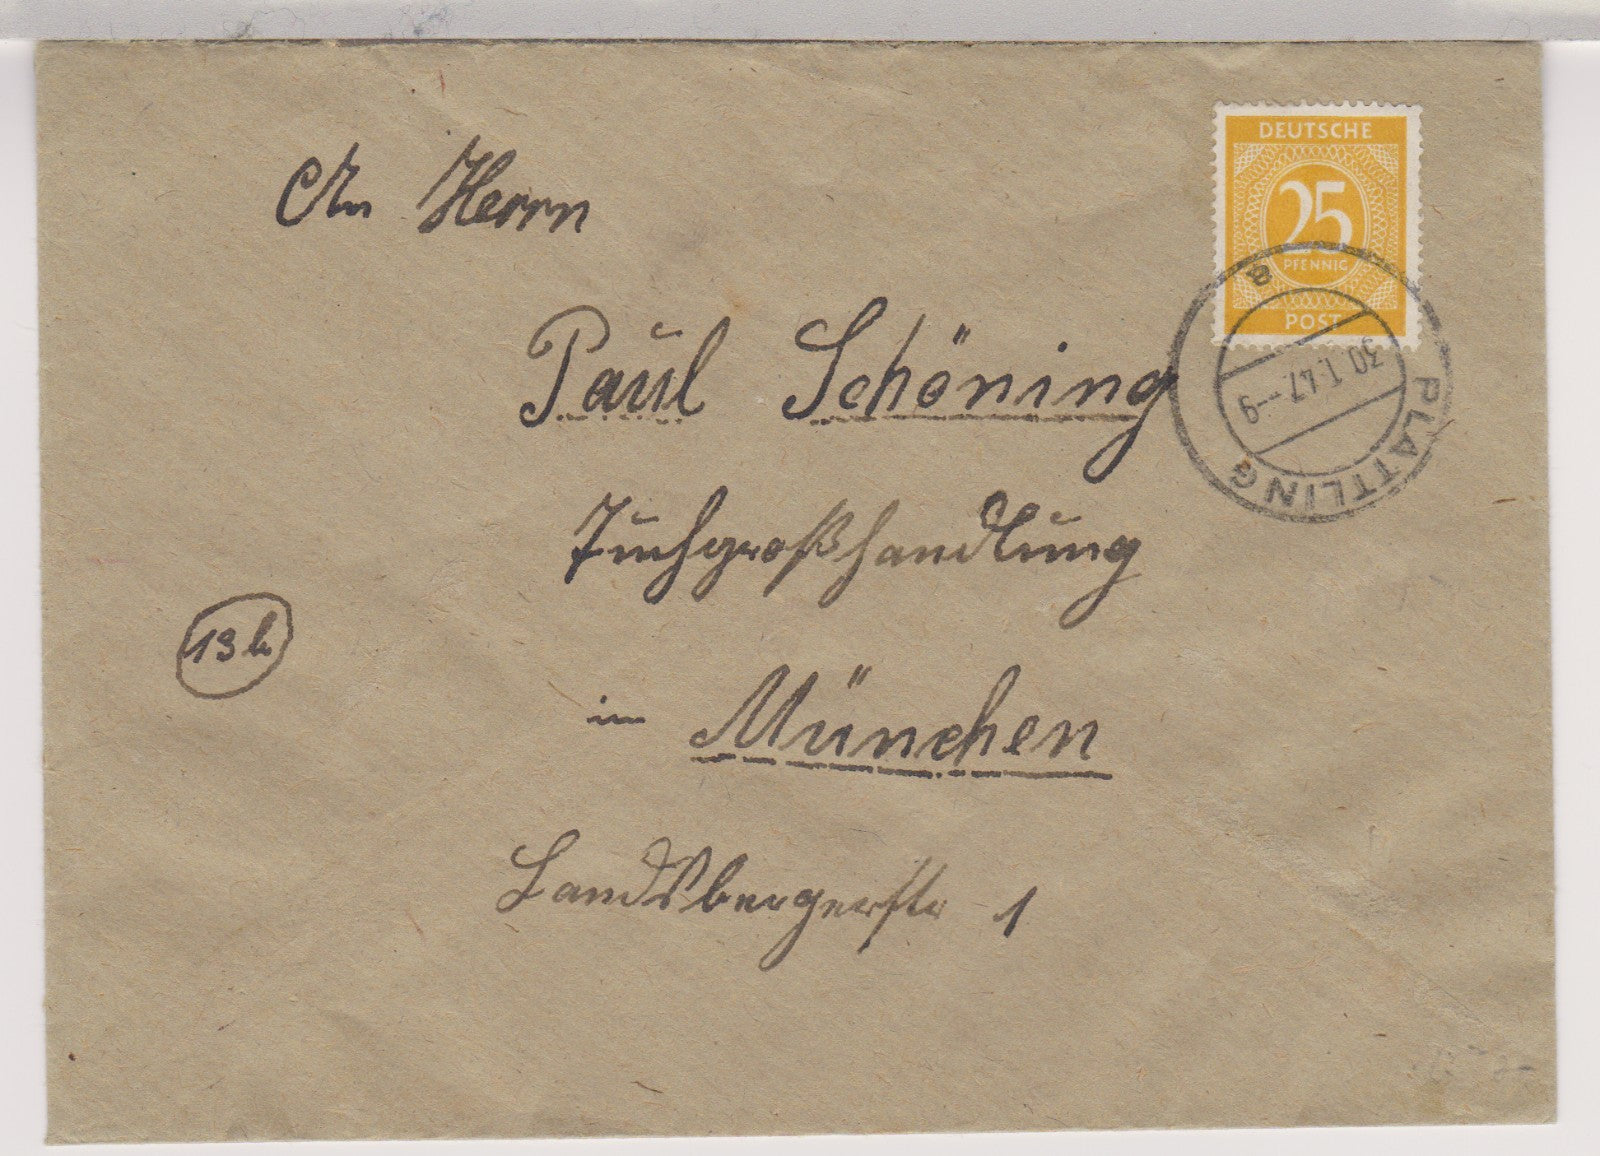 An Herrn
DEUTSCHE
25
PFENNIG
POST
PLATTLING
30.1.47.--9
a
Paul Schöning
Tuchgroßhandlung
13b
in München
Landsbergerstr 1